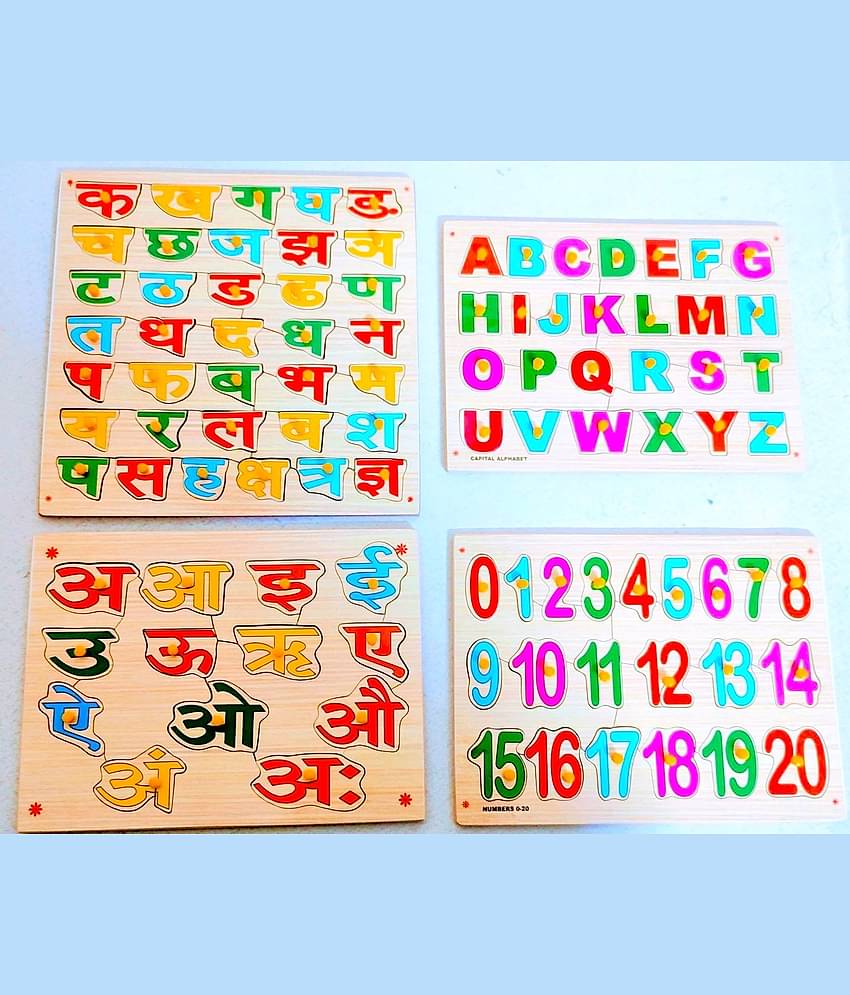 क ख ग घ ङ
च छ ज झ ञ
ट ठ ड ढ ण
त थ द ध न
प फ ब भ म
य र ल व श
ष स ह क्ष त्र ज्ञ
A B C D E F G
H I J K L M N
O P Q R S T
U V W X Y Z
CAPITAL ALPHABET
अ आ इ ई
उ ऊ ऋ ए
ऐ ओ औ
अं अः
0 1 2 3 4 5 6 7 8
9 10 11 12 13 14
15 16 17 18 19 20
NUMBERS 0-20